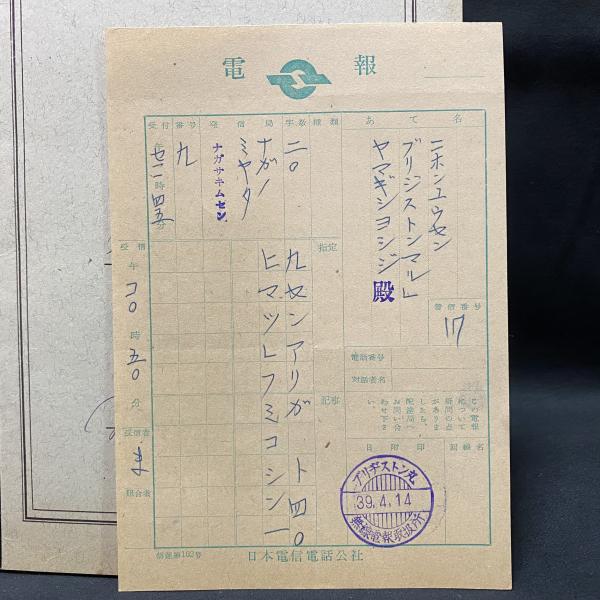 電報
あて名
ニホンユウセン
ブリジストンマル」
ヤマギシヨシジ 殿
種類
字数
二〇
発信局
ナガノ
ミヤタ
ナガサキムセン
受付番号
九
午
時
四五
分
指定
記事
九センアリガ
ト四〇
ヒマツレフミコシン一
受信
午
コ〇
時
五〇
分
受信者
ま
照合者
着信番号
17
電話番号
対話者名
この電報
について
疑問の点
がありま
したら、
配達局へ
お問い合
わせ下さ
い。
日附印
回線名
ブリヂストン丸
39.4.14
無線電報取扱所
日本電信電話公社